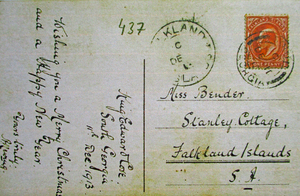 437
KLAND
DE
ONE PENNY
ORGIA
Wishing you a Merry Christmas
and a Happy New Year
Yours truly
King Edward Cove
South Georgia
Dec 1913
Miss Bender
Stanley Cottage,
Falkland Islands
S. A